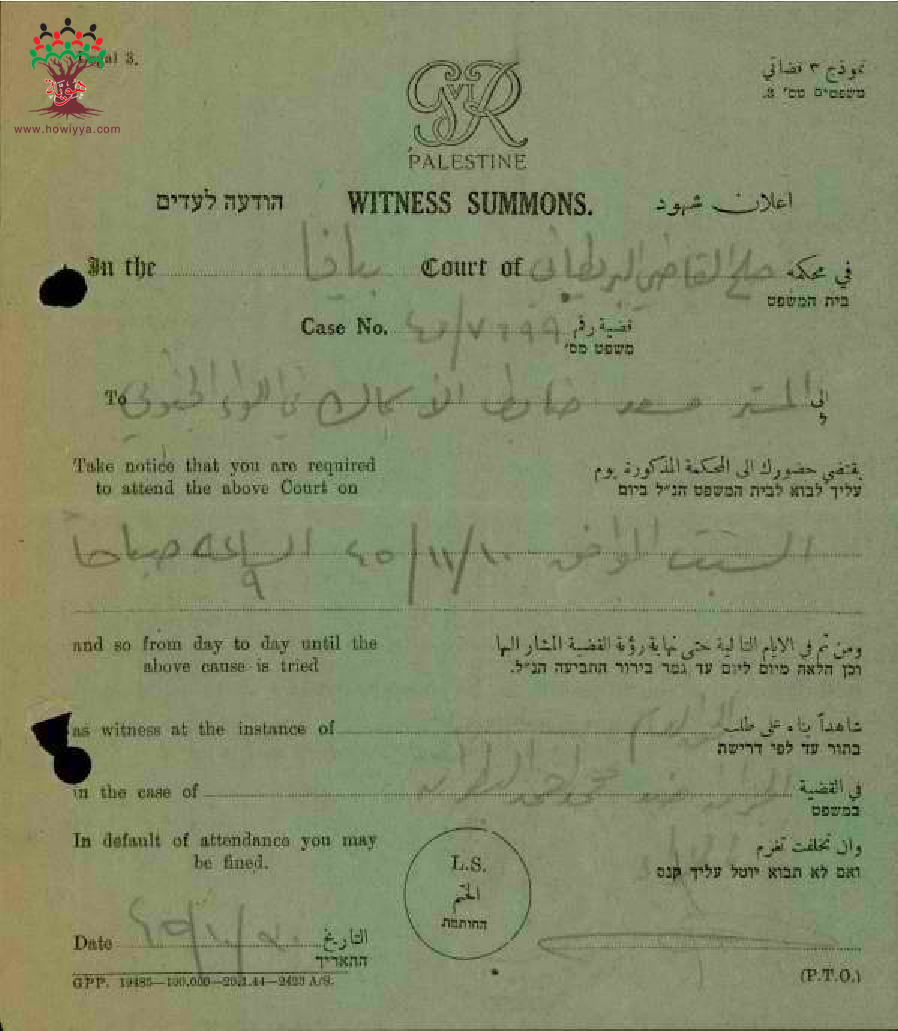 Legal 3.
نموذج ٣ قضائي
משפטים מס׳ 3.
هوية
www.howiyya.com
GVIR
PALESTINE
הודעה לעדים WITNESS SUMMONS. اعلان شهود
In the بيافا Court of صلح القاضي البريطاني في محكمة
בית המשפט
Case No. قضية رقم
משפט מס׳
To المستر ضابط الأسماك في اللواء الجنوبي الى
ל
Take notice that you are required يقتضي حضورك الى المحكمة المذكورة يوم
to attend the above Court on עליך לבוא לבית המשפט הנ״ל ביום
السبت الموافق ٤٥/١١/١٠ الساعة ٩ صباحاً
and so from day to day until the ومن ثم في الايام التالية حتى نهاية رؤية القضية المشار اليها
above cause is tried וכן הלאה מיום ליום עד גמר בירור התביעה הנ״ל.
as witness at the instance of شاهداً بناء على طلب
בתור עד לפי דרישת
in the case of محمد احمد في القضية
במשפט
In default of attendance you may وان تخلفت تغرم
be fined. ואם לא תבוא יוטל עליך קנס
L.S.
الختم
החותמת
Date التاريخ
התאריך
(P.T.O.)
GPP. 19485—100.000—20.1.44—2423 A/S.